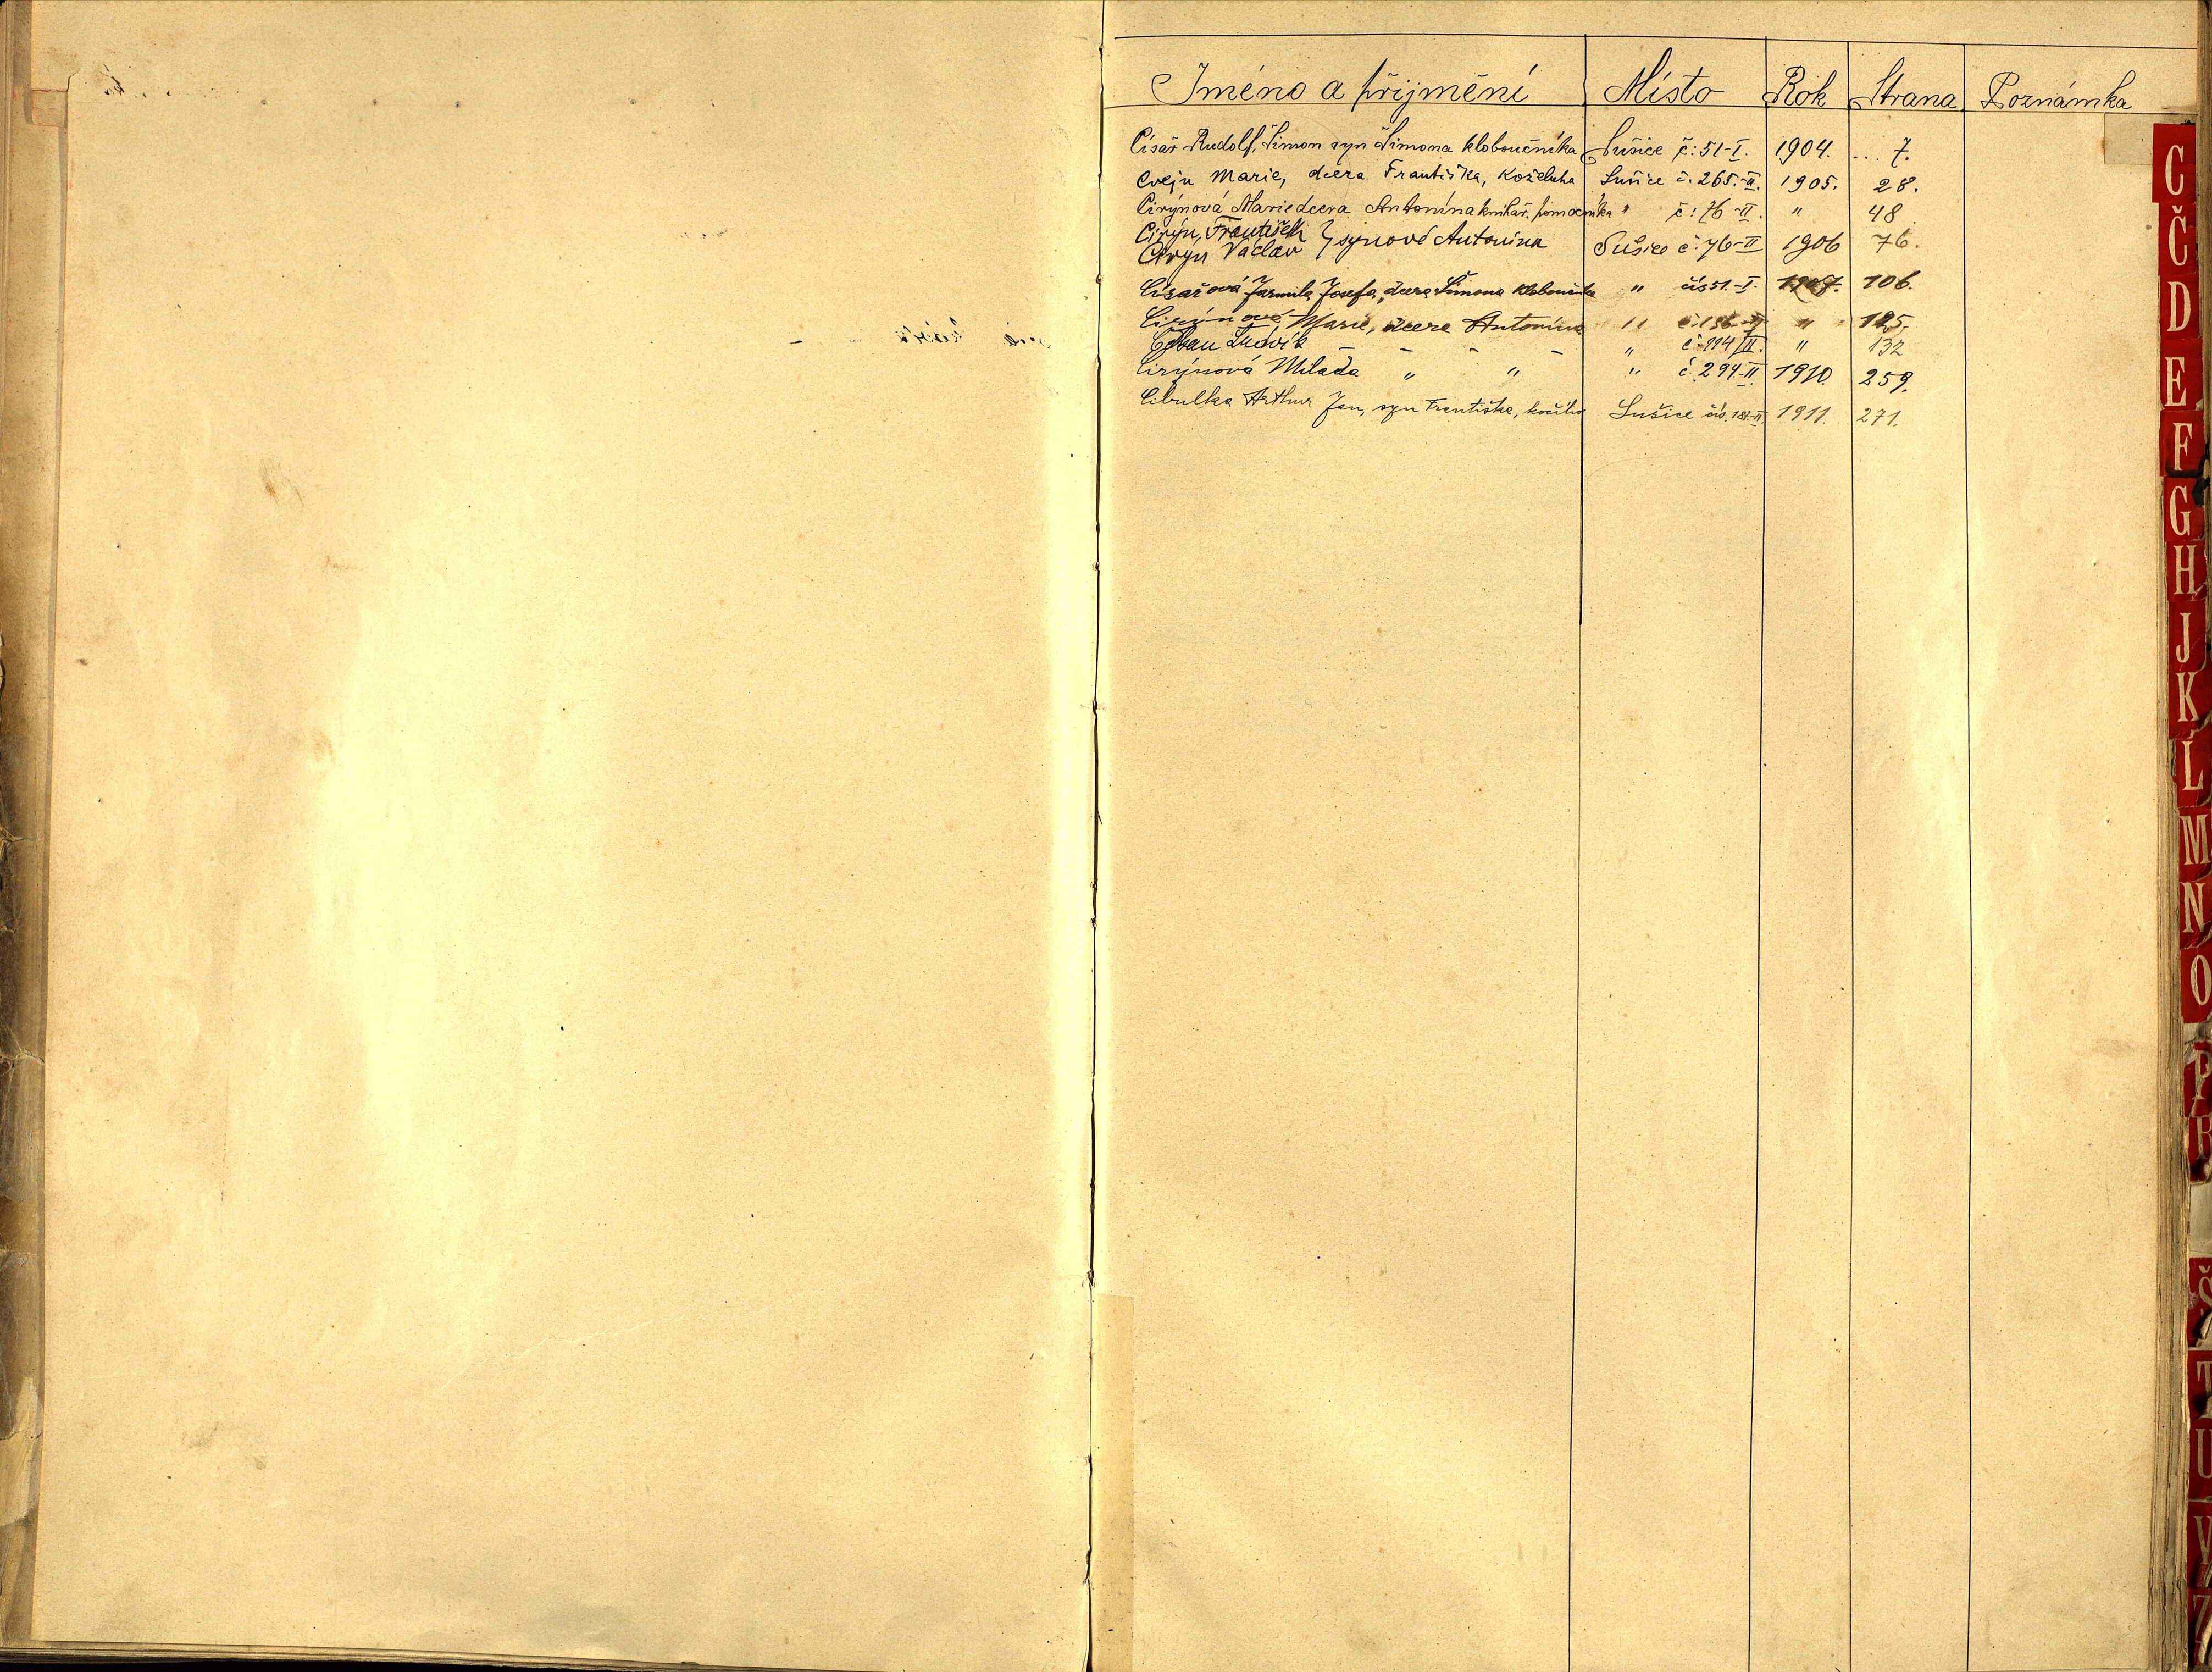 Jméno a přijmění Místo Rok Strana Poznámka
Císař Rudolf, Šimon syn Šimona kloboučníka Sušice č: 51-I. 1904. ... 7.
Cvejn Marie, dcera Františka, koželuha Sušice č. 265.-II. 1905. 28.
Cirýnová Marie dcera Antonína knihař. pomocníka " č: 76-II. " 48
Cirýn, František } synové Antonína Sušice č. 76-II 1906 76.
Cirýn Václav
Císařová Jarmila Josefa, dcera Šimona kloboučníka " čís 51.-I. 1907. 106.
Cirýnová, Marie, dcera Antonína " " 125.
Ludvík - - - - " " 132
Cirýnová Milada " " " č. 294-II. 1910. 259.
Cibulka Arthur Jan, syn Františka, kočího Sušice 1911. 271.
C
Č
D
E
F
G
H
J
K
L
M
N
O
P
R
Š
T
U
V
Z